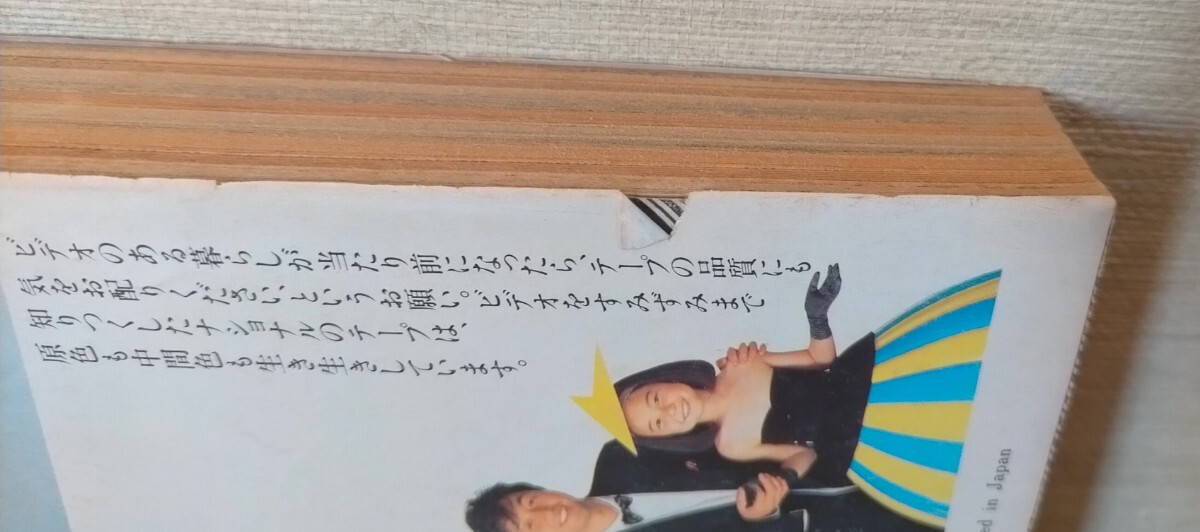 ビデオのある暮らしが当たり前になったら、テープの品質にも
気をお配りくださいというお願い。ビデオをすみずみまで
知りつくしたナショナルのテープは、
原色も中間色も生き生きしています。
ed in Japan